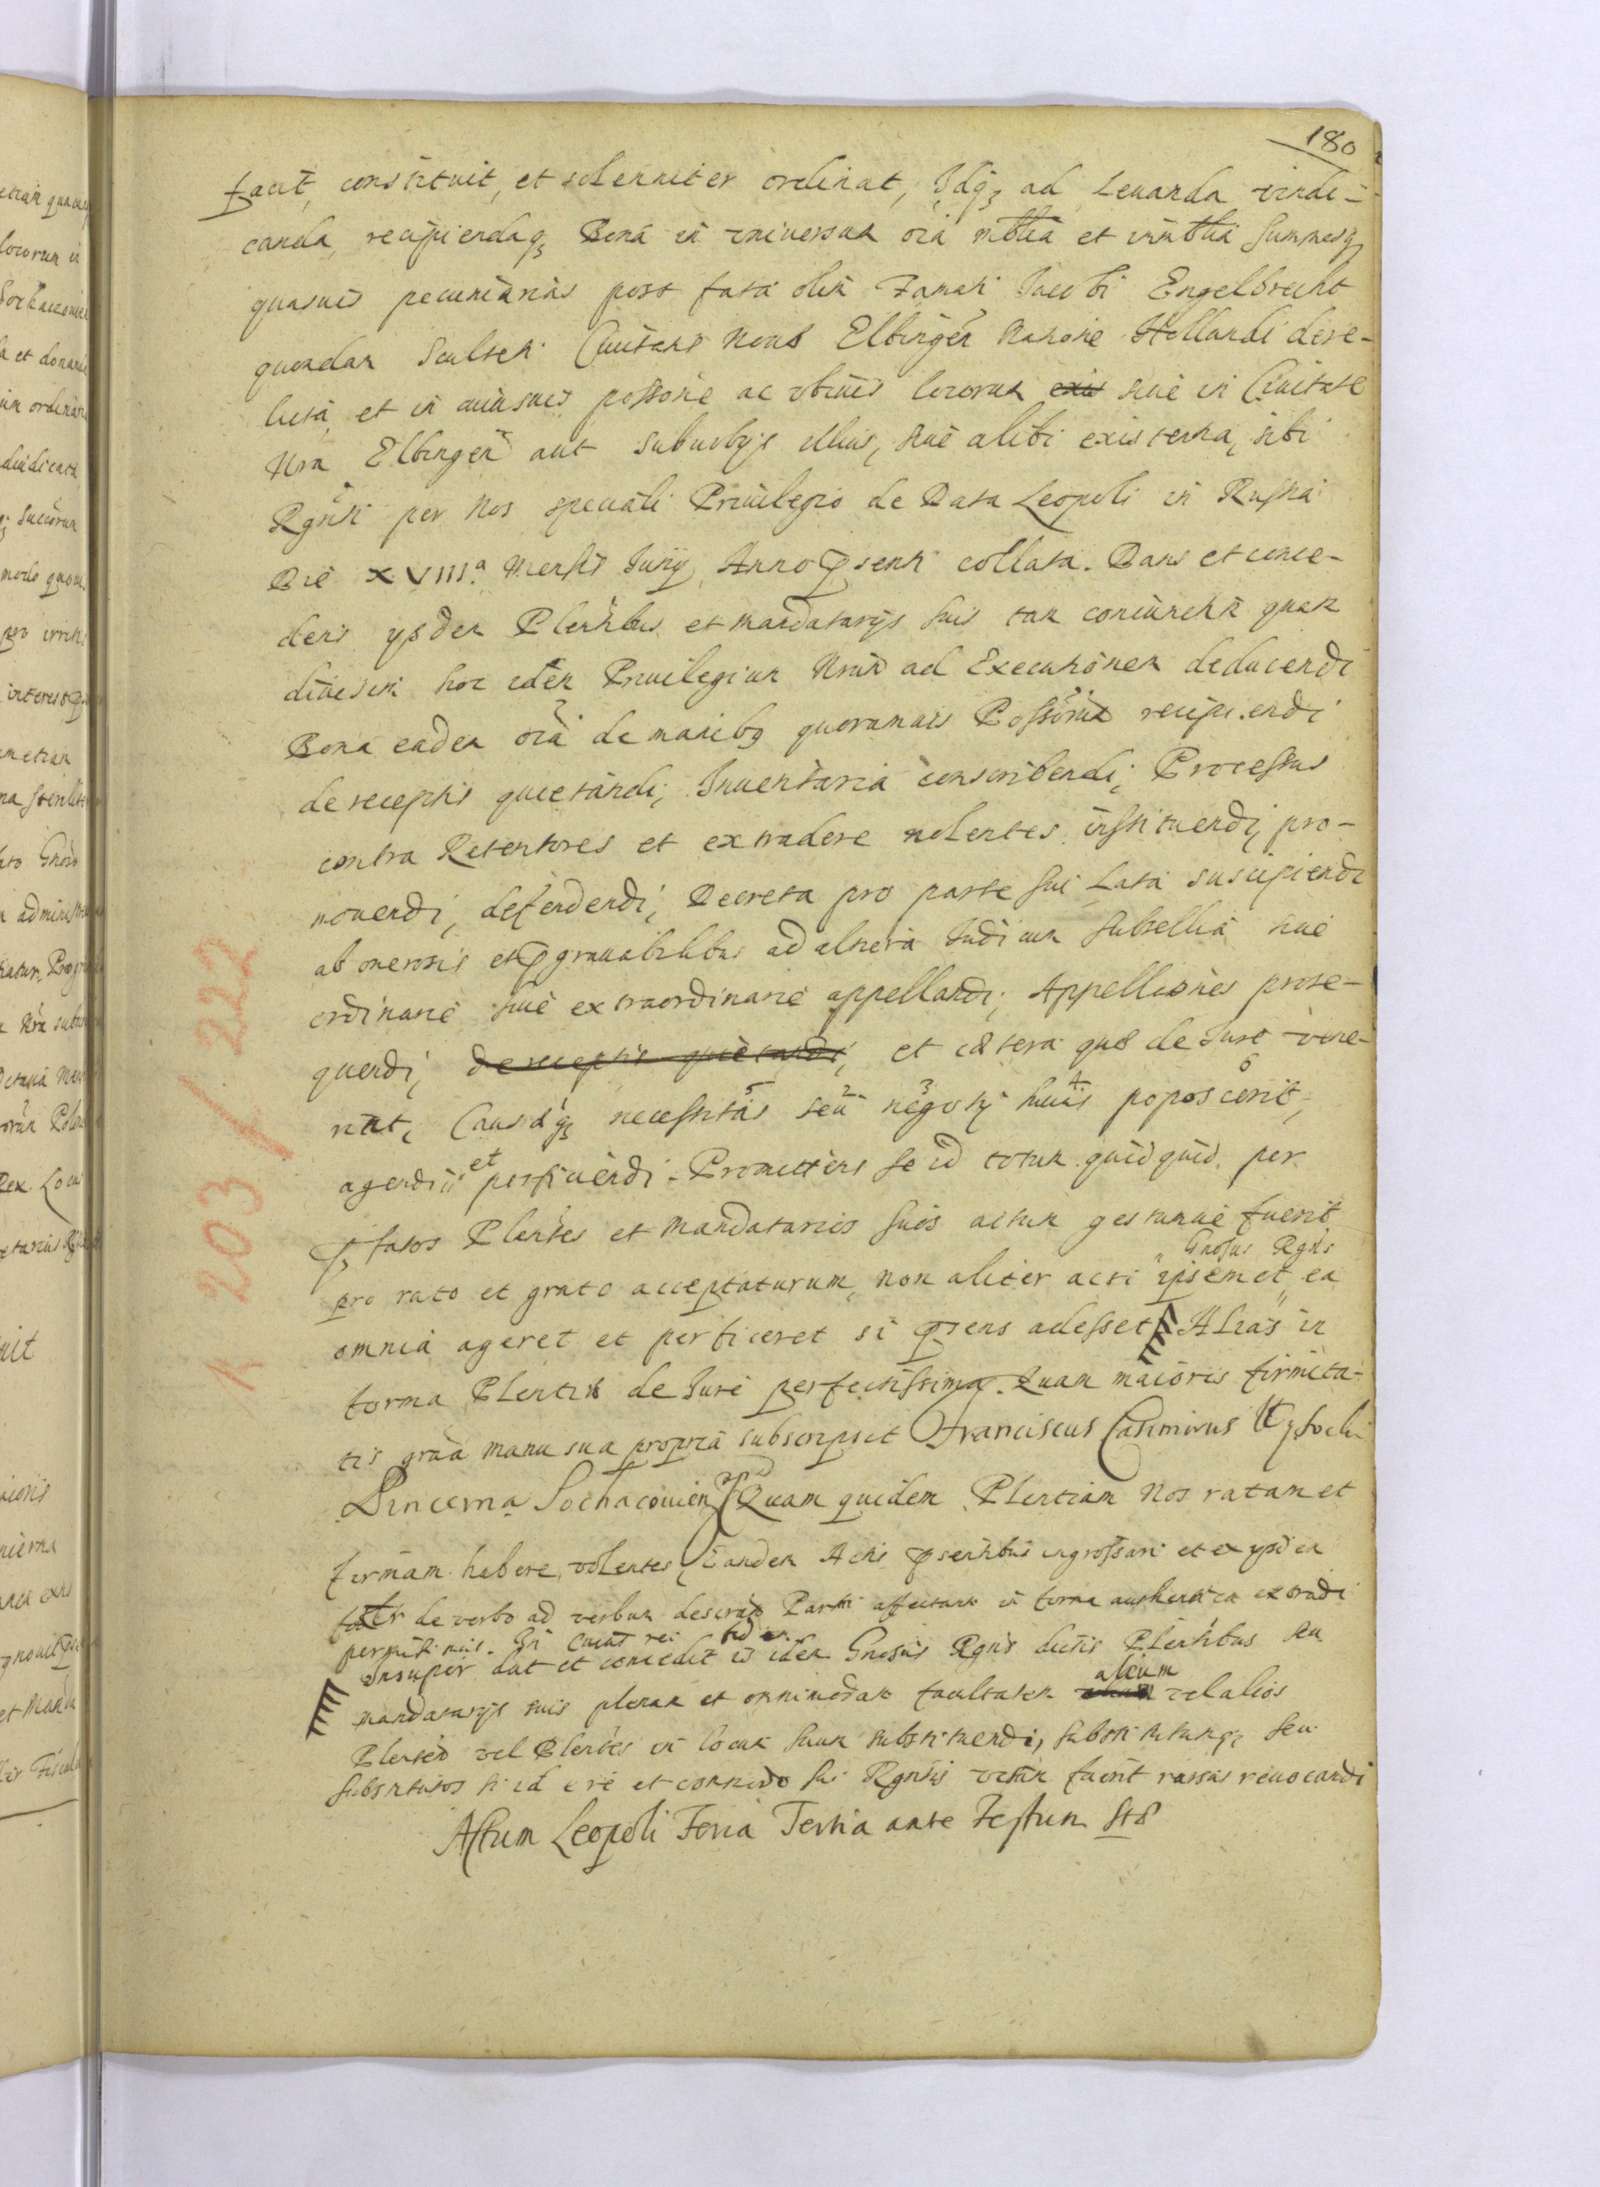 180
facit, constituit, et solenniter ordinat, Idq3 ad Leuanda vindi-
canda, recipiendaq3 Bona in universum oia mbilia et immbilia summasq3
quasuis pecuniarias post fata olim Famati Iacobi Engelbrecht
quondam Sculteti Ciuitatis Nrae Elbingen Natione Hollandi dere-
licta, et in cuiusuis possone ac vbiuis locorum exis siue in Ciuitate
Nra Elbingen aut suburbijs illius, siue alibi existentia, sibi
Rgnti per Nos speciali Priuilegio de Data Leopoli in Russia
Die XVIII.a Mensis Iunij Anno psenti collata. Dans et conce-
dens ysdem Plentibus et mandatarijs suis tam coniunctim quam
diuisim hoc idem Priuilegium Nrum ad Executionem deducendi
Bona eadem oia de manibq quorumuis Possorum recipiendi
de receptis quietandi, Inuentaria conscribendi, Processus
contra Retentores et extradere nolentes instituendi, pro-
mouendi, defendendi, Decreta pro parte sui Lata suscipiendi
ab onerosis et pgrauabilibus ad alteria Iudicum subsellia siue
ordinarie siue extraordinarie appellandi, Appellaones prose-
quendi, de receptis quietandi, et caetera quae de Iure vene-
rint, Causaq3 necessitas 5 seu 2 negotij 3 huius 4 poposcerit 6,
agendi et perficiendi. Promittens se id totum quidquid per
pfatos Plentes et mandatarios suos actum gestumue fuerit
pro rato et grato acceptaturum, non aliter acsi ipsemet Gnosus Rgns ea
omnia ageret et perficeret si psens adesset Alias in
forma Plentiae de Iure perfectissima. Quam maioris firmita-
tis graa manu sua propria subscripsit Franciscus Casimirus Wysocki
Pincerna Sochaczouien Quam quidem Plentiam Nos ratam et
firmam habere volentes, Eandem Actis psentibus ingrossari et ex ysdem
de verbo ad verbum descriptam Parti affectanti in forma authentica extradi
permisimus. In cuius rei fidem
Insuper dat et concedit is idem Gnosus Rgns dictis Plentibus seu
mandatarijs suis plenam et omnimodam facultatem alium vel alios
Plentem vel Plentes in locum suum substituendi, substitutumq3 seu
substitutos si id e re et commodo sui Rgntis visum fuerit rursus reuocandi
Actum Leopoli Feria Tertia ante Festum Stae
1 203 / 222